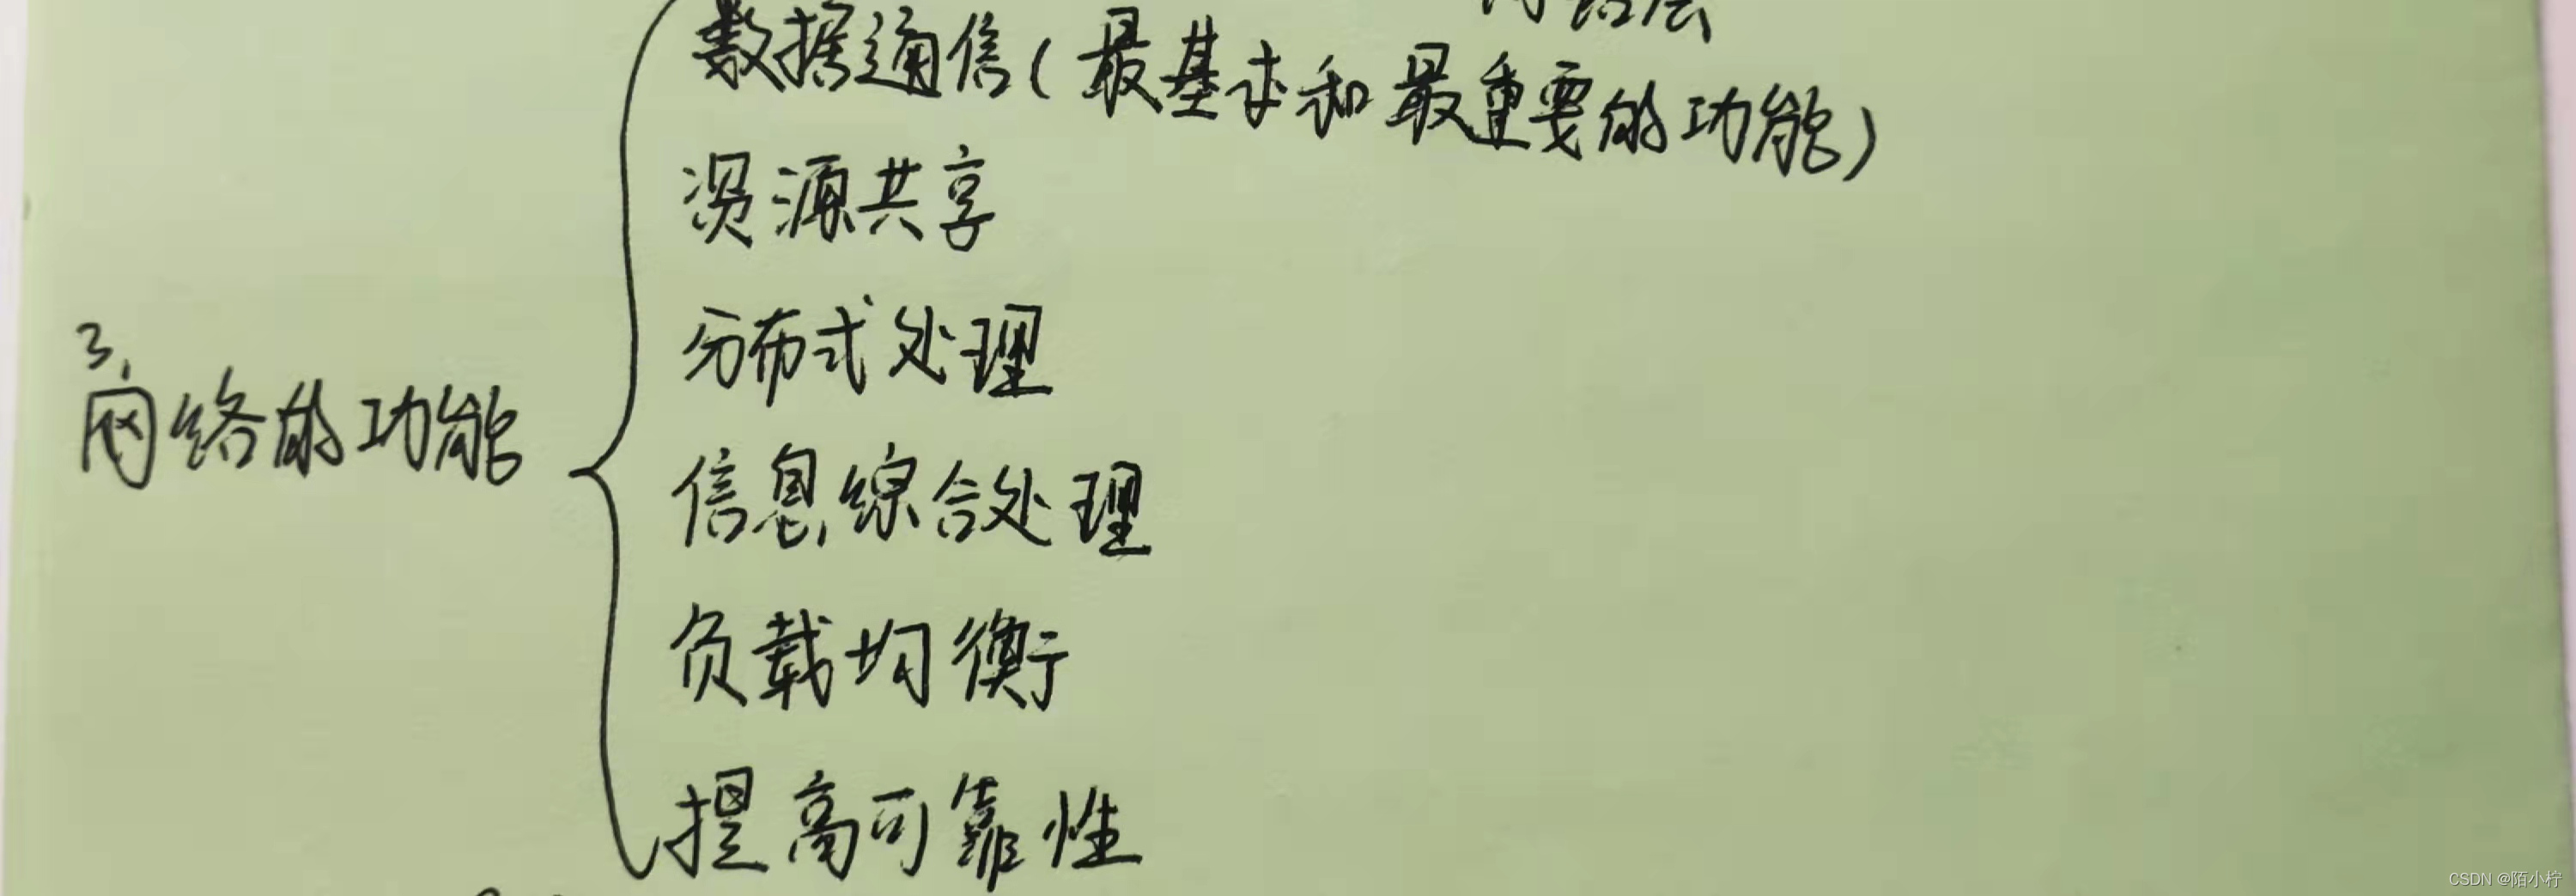 数据通信(最基本和最重要的功能)
资源共享
分布式处理
3、
网络的功能
信息综合处理
负载均衡
提高可靠性
CSDN @陌小柠